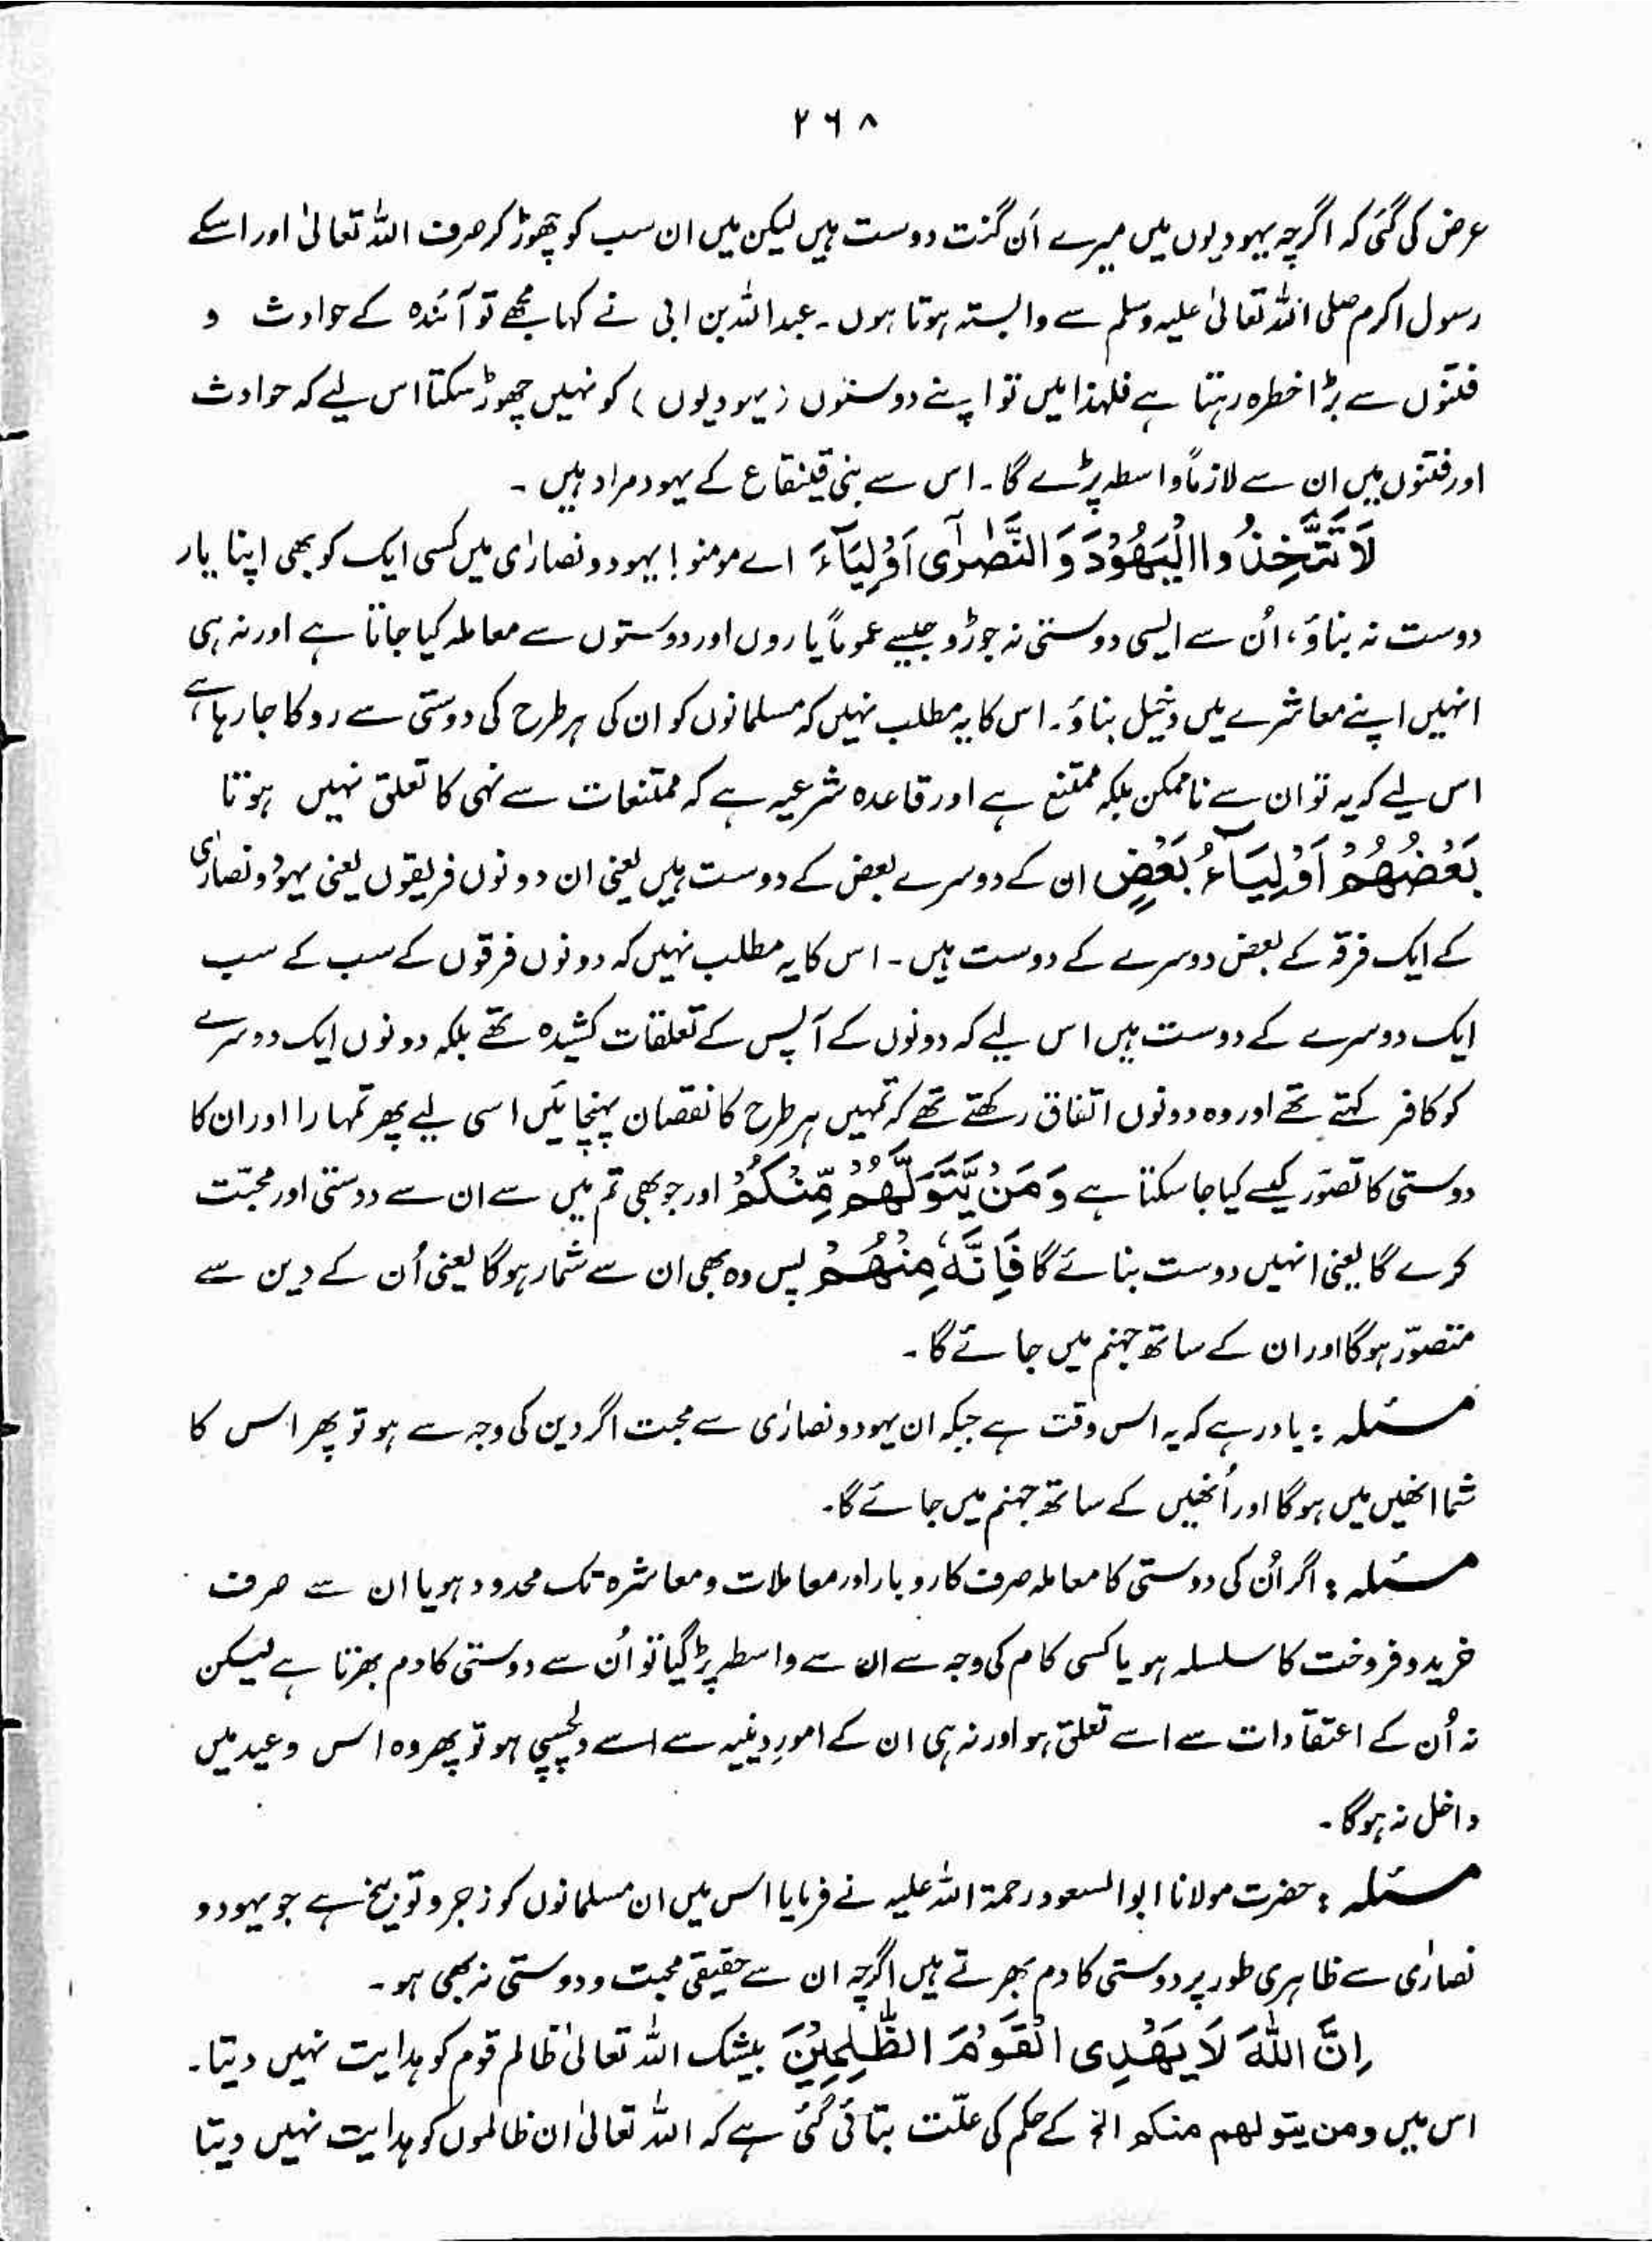 ۲۶۸
عرض کی گئی کہ اگرچہ یہودیوں میں میرے اَن گنت دوست ہیں لیکن میں ان سب کو چھوڑ کر صرف اللہ تعالیٰ اور اسکے
رسول اکرم صلی اللہ تعالیٰ علیہ وسلم سے وابستہ ہوتا ہوں۔ عبداللہ بن ابی نے کہا مجھے تو آئندہ کے حوادث و
فتنوں سے بڑا خطرہ رہتا ہے فلہذا میں تو اپنے دوستوں (یہودیوں) کو نہیں چھوڑ سکتا اس لیے کہ حوادث
اور فتنوں میں ان سے لازماً واسطہ پڑے گا۔ اس سے بنی قینقاع کے یہود مراد ہیں۔
لَا تَتَّخِذُوا الْيَهُوْدَ وَ النَّصٰرٰٓى اَوْلِيَآءَ اے مومنو! یہود و نصاریٰ میں کسی ایک کو بھی اپنا یار
دوست نہ بناؤ، اُن سے ایسی دوستی نہ جوڑو جیسے عموماً یاروں اور دوستوں سے معاملہ کیا جاتا ہے اور نہ ہی
انہیں اپنے معاشرے میں دخیل بناؤ۔ اس کا یہ مطلب نہیں کہ مسلمانوں کو ان کی ہر طرح کی دوستی سے روکا جا رہا ہے
اس لیے کہ یہ تو ان سے ناممکن بلکہ ممتنع ہے اور قاعدہ شرعیہ ہے کہ ممتنعات سے نہی کا تعلق نہیں ہوتا
بَعْضُهُمْ اَوْلِيَآءُ بَعْضٍ ان کے دوسرے بعض کے دوست ہیں یعنی ان دونوں فریقوں یعنی یہود و نصاریٰ
کے ایک فرقہ کے بعض دوسرے کے دوست ہیں۔ اس کا یہ مطلب نہیں کہ دونوں فرقوں کے سب کے سب
ایک دوسرے کے دوست ہیں اس لیے کہ دونوں کے آپس کے تعلقات کشیدہ تھے بلکہ دونوں ایک دوسرے
کو کافر کہتے تھے اور وہ دونوں اتفاق رکھتے تھے کہ تمہیں ہر طرح کا نقصان پہنچائیں اسی لیے پھر تمہارا اور ان کا
دوستی کا تصوّر کیسے کیا جا سکتا ہے وَ مَنْ يَّتَوَلَّهُمْ مِّنْكُمْ اور جو بھی تم میں سے ان سے دوستی اور محبّت
کرے گا یعنی انہیں دوست بنائے گا فَاِنَّهٗ مِنْهُمْ پس وہ بھی ان سے شمار ہوگا یعنی اُن کے دین سے
متصوّر ہوگا اور ان کے ساتھ جہنم میں جائے گا۔
مسئلہ : یاد رہے کہ یہ اس وقت ہے جبکہ ان یہود و نصاریٰ سے محبت اگر دین کی وجہ سے ہو تو پھر اس کا
شما انھیں میں ہوگا اور اُنھیں کے ساتھ جہنم میں جائے گا۔
مسئلہ : اگر اُن کی دوستی کا معاملہ صرف کاروبار اور معاملات و معاشرہ تک محدود ہو یا ان سے صرف
خرید و فروخت کا سلسلہ ہو یا کسی کام کی وجہ سے ان سے واسطہ پڑ گیا تو اُن سے دوستی کا دم بھرتا ہے لیکن
نہ اُن کے اعتقادات سے اسے تعلق ہو اور نہ ہی ان کے امورِ دینیہ سے اسے دلچسپی ہو تو پھر وہ اس وعید میں
داخل نہ ہوگا۔
مسئلہ : حضرت مولانا ابوالسعود رحمۃ اللہ علیہ نے فرمایا اس میں ان مسلمانوں کو زجر و توبیخ ہے جو یہود و
نصاریٰ سے ظاہری طور پر دوستی کا دم بھرتے ہیں اگرچہ ان سے حقیقی محبت و دوستی نہ بھی ہو۔
اِنَّ اللّٰهَ لَا يَهْدِى الْقَوْمَ الظّٰلِمِيْنَ بیشک اللہ تعالیٰ ظالم قوم کو ہدایت نہیں دیتا۔
اس میں ومن یتولھم منکم الخ کے حکم کی علّت بتائی گئی ہے کہ اللہ تعالیٰ ان ظالموں کو ہدایت نہیں دیتا